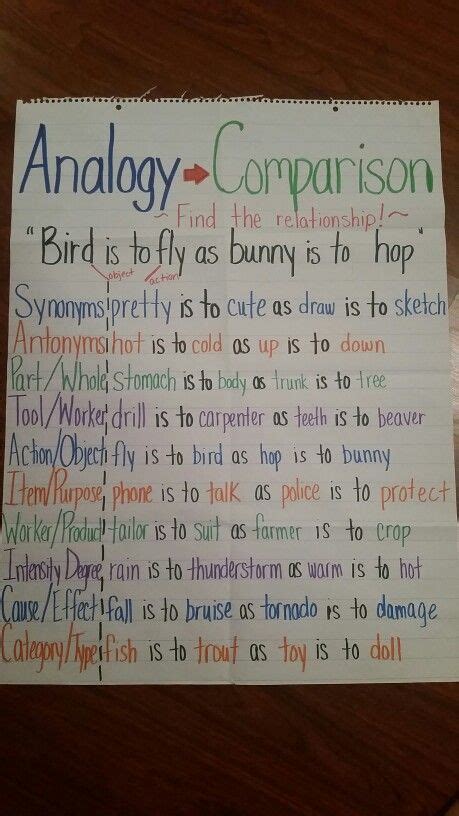 Analogy → Comparison
~ Find the relationship! ~
"Bird is to fly as bunny is to hop"
object action
Synonyms pretty is to cute as draw is to sketch
Antonyms hot is to cold as up is to down
Part/Whole stomach is to body as trunk is to tree
Tool/Worker drill is to carpenter as teeth is to beaver
Action/Object fly is to bird as hop is to bunny
Item/Purpose phone is to talk as police is to protect
Worker/Product tailor is to suit as farmer is to crop
Intensity Degree rain is to thunderstorm as warm is to hot
Cause/Effect fall is to bruise as tornado is to damage
Category/Type fish is to trout as toy is to doll